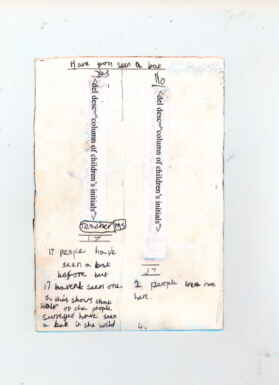 Have you seen a bat
Yes
No
<del desc="column of children's initials">
<del desc="column of children's initials">
Teacher
17
17
17 people have
seen a bat
before but
17 havent seen one.
this shows that
of the people
surveyed have seen
a bat in the wild
2 people were not
here.